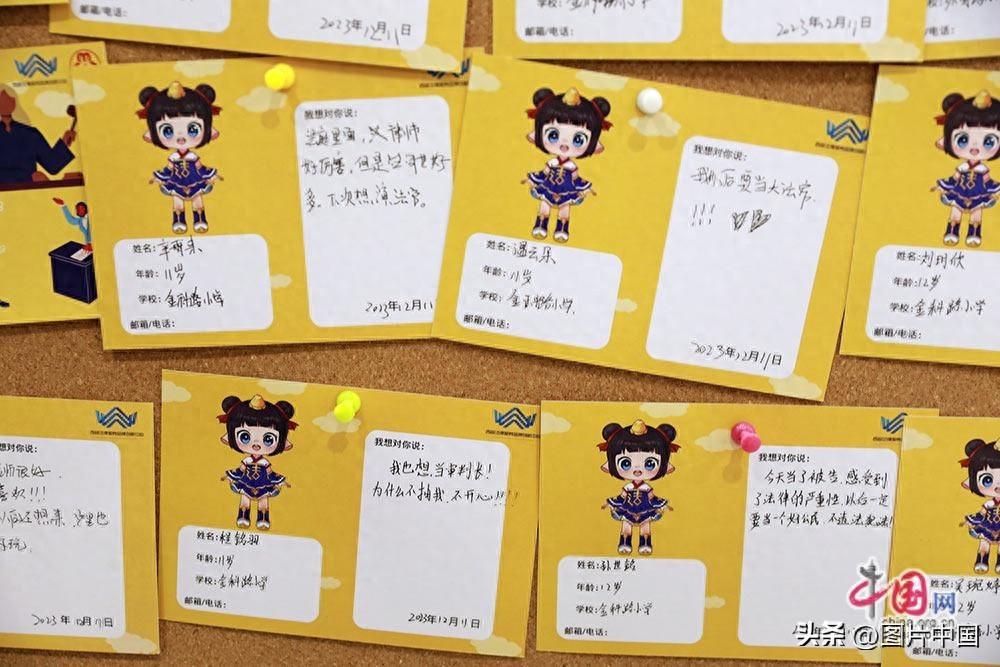 邮箱/电话：
2023年12月11日
邮箱/电话：
2023年12月11日
我想对你说：
好厉害，但是台词也好
多，下次想演法官。
姓名：
年龄：11岁
学校：金科路小学
邮箱/电话：
2023年12月11
我想对你说：
我以后要当大法官.
!!!
姓名：温云朵
年龄：11岁
学校：金科路小学.
邮箱/电话：
2023年12月11日
姓名：刘玥欣
年龄：12岁
学校：金科路小学
邮箱/电话：
我想对你说：
师很好.
喜欢!!!
以后还想来 这里也
好玩.
2023年12月11日
我想对你说：
我也想当审判长！
为什么不抽我，不开心!!!!
姓名：程铭羽
年龄：11岁
学校：金科路小学
邮箱/电话：
2023年12月11日
我想对你说：
今天当了被告，感受到
了法律的严重性，以后一定
要当一个好公民，不违法犯法!
姓名：
年龄：12岁
学校：金科路小学
邮箱/电话：
姓名：
2岁
中国网
china.org.cn
头条 @图片中国